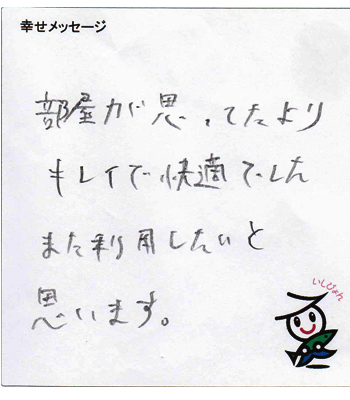 幸せメッセージ
部屋が思ってたより
キレイで快適でした
また利用したいと
思います。
いしぴょん